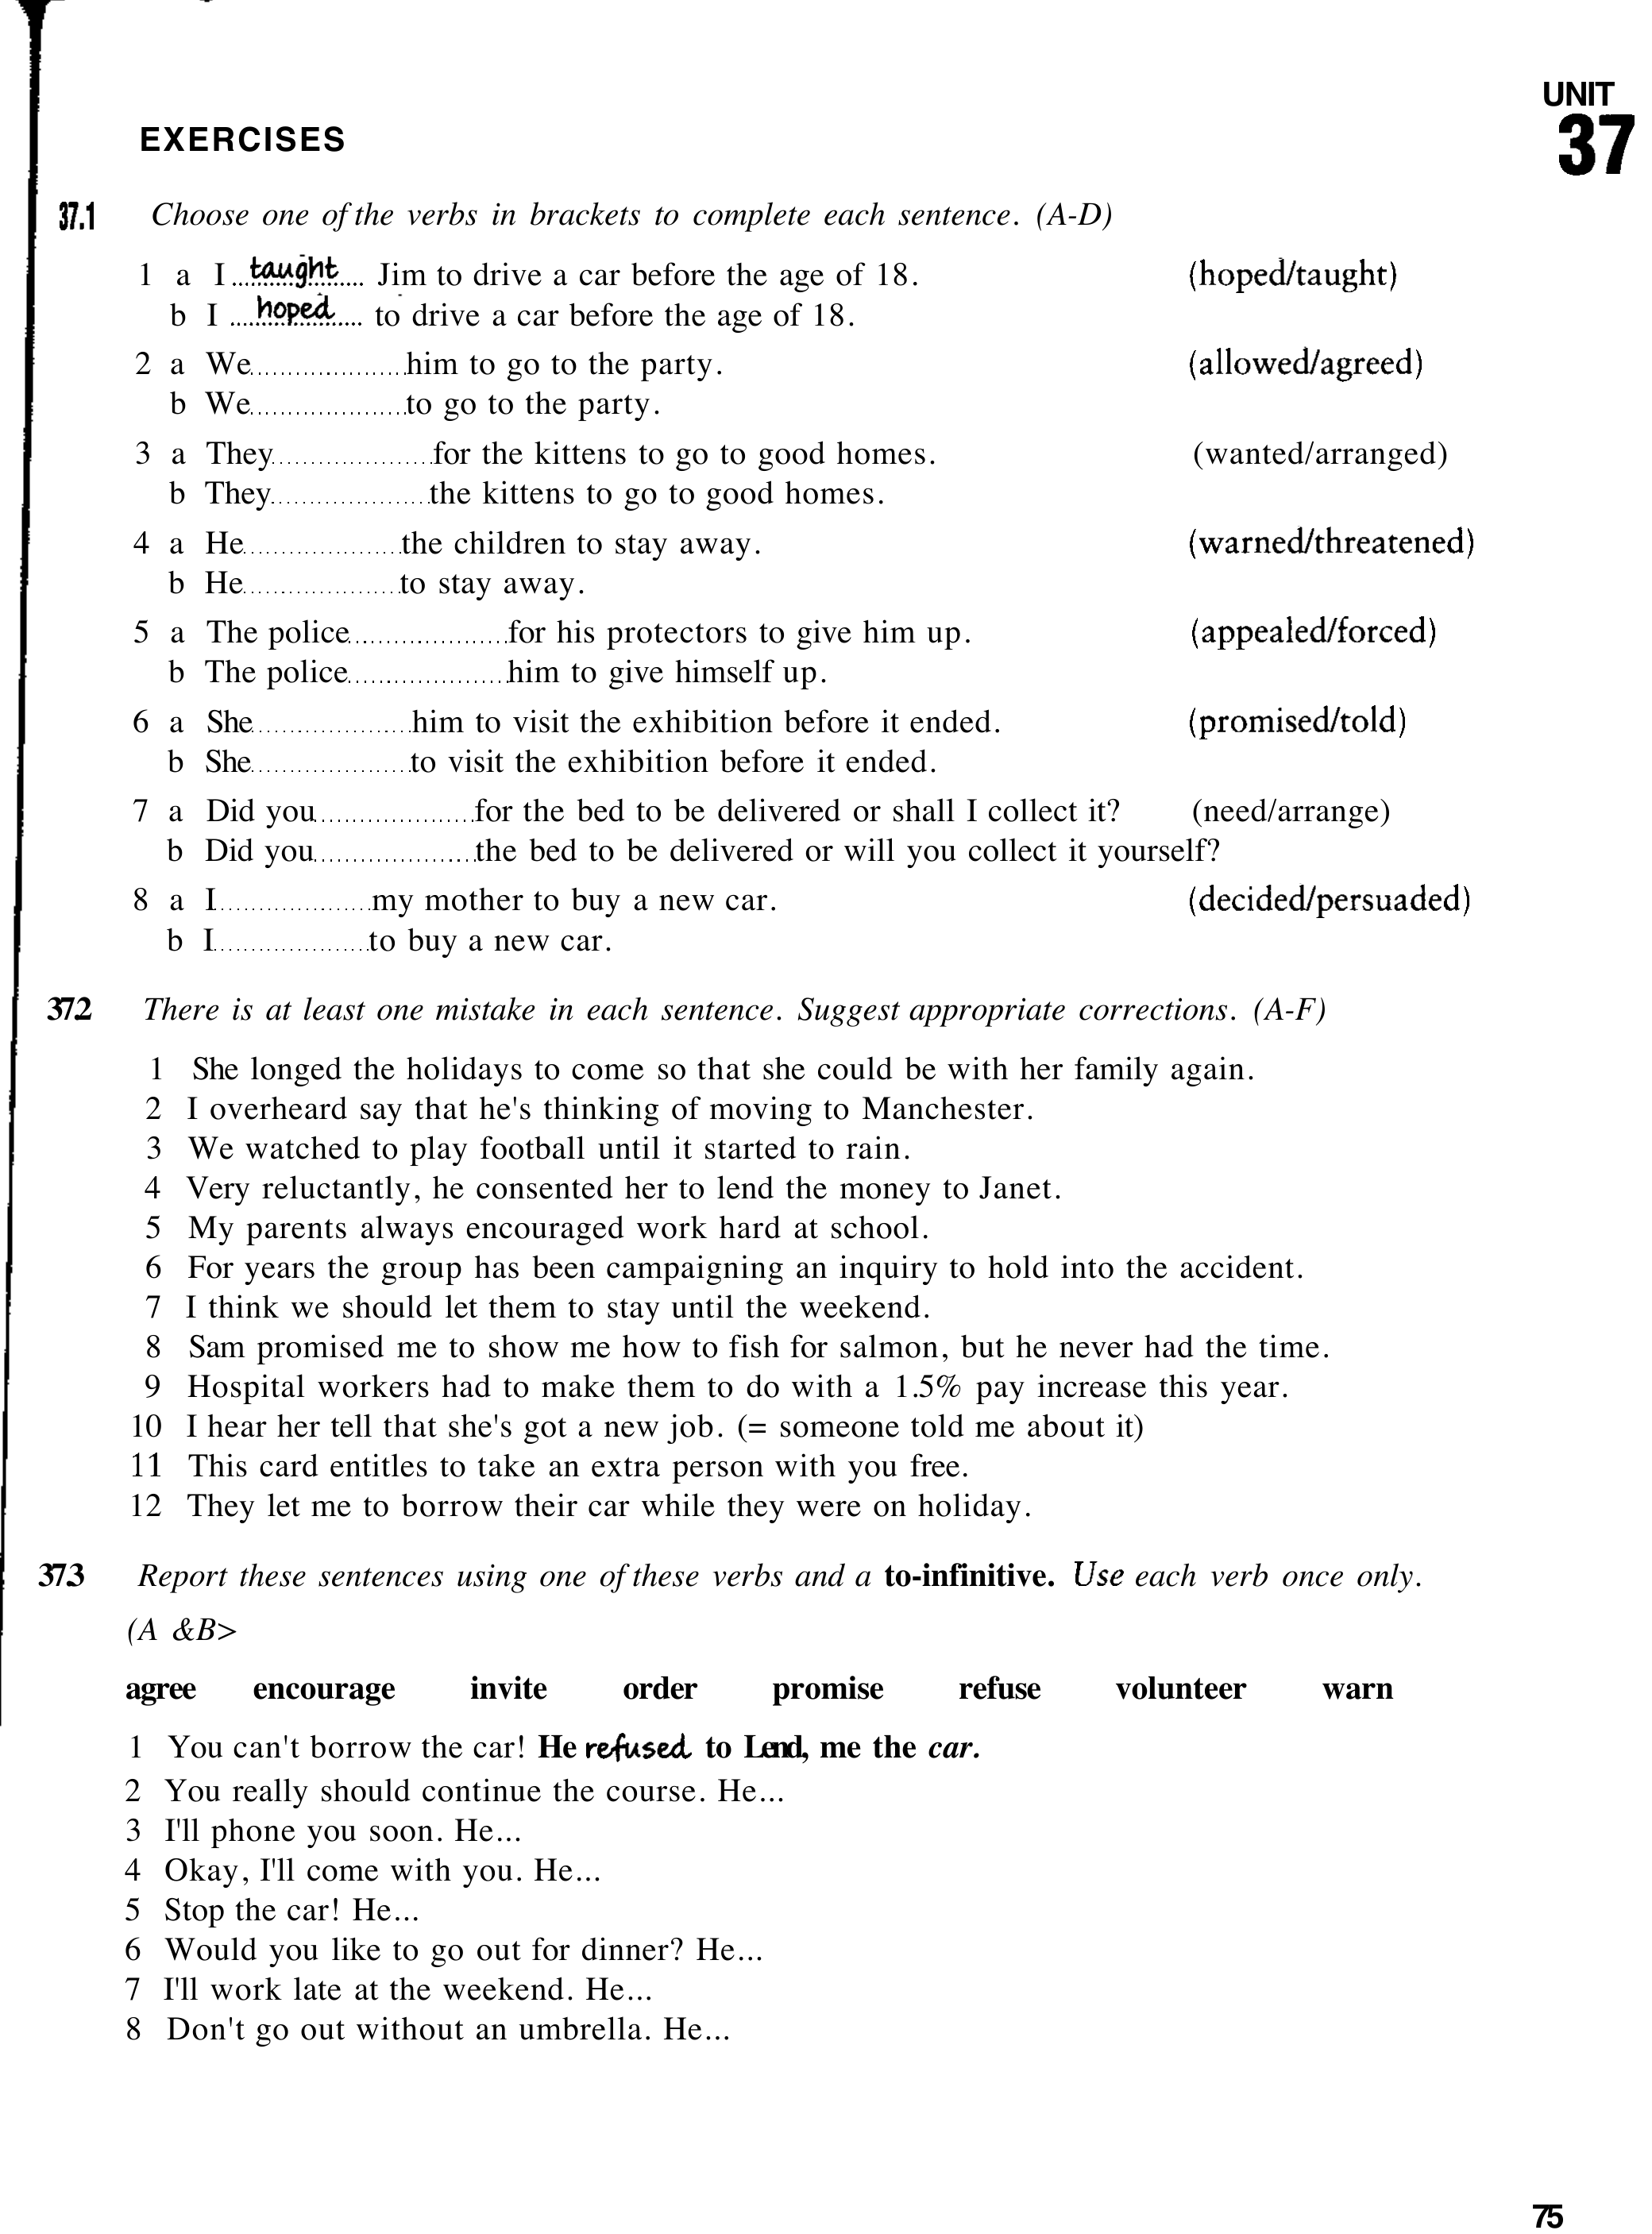 UNIT
37
EXERCISES
37.1 Choose one of the verbs in brackets to complete each sentence. (A-D)
1 a I ..... taught ..... Jim to drive a car before the age of 18. (hoped/taught)
b I ..... hoped ..... to drive a car before the age of 18.
2 a We.....................him to go to the party. (allowed/agreed)
b We.....................to go to the party.
3 a They.....................for the kittens to go to good homes. (wanted/arranged)
b They.....................the kittens to go to good homes.
4 a He.....................the children to stay away. (warned/threatened)
b He.....................to stay away.
5 a The police.....................for his protectors to give him up. (appealed/forced)
b The police.....................him to give himself up.
6 a She.....................him to visit the exhibition before it ended. (promised/told)
b She.....................to visit the exhibition before it ended.
7 a Did you.....................for the bed to be delivered or shall I collect it? (need/arrange)
b Did you.....................the bed to be delivered or will you collect it yourself?
8 a I.....................my mother to buy a new car. (decided/persuaded)
b I.....................to buy a new car.
37.2 There is at least one mistake in each sentence. Suggest appropriate corrections. (A-F)
1 She longed the holidays to come so that she could be with her family again.
2 I overheard say that he's thinking of moving to Manchester.
3 We watched to play football until it started to rain.
4 Very reluctantly, he consented her to lend the money to Janet.
5 My parents always encouraged work hard at school.
6 For years the group has been campaigning an inquiry to hold into the accident.
7 I think we should let them to stay until the weekend.
8 Sam promised me to show me how to fish for salmon, but he never had the time.
9 Hospital workers had to make them to do with a 1.5% pay increase this year.
10 I hear her tell that she's got a new job. (= someone told me about it)
11 This card entitles to take an extra person with you free.
12 They let me to borrow their car while they were on holiday.
37.3 Report these sentences using one of these verbs and a to-infinitive. Use each verb once only.
(A &B>
agree encourage invite order promise refuse volunteer warn
1 You can't borrow the car! He refused to Lend, me the car.
2 You really should continue the course. He...
3 I'll phone you soon. He...
4 Okay, I'll come with you. He...
5 Stop the car! He...
6 Would you like to go out for dinner? He...
7 I'll work late at the weekend. He...
8 Don't go out without an umbrella. He...
75